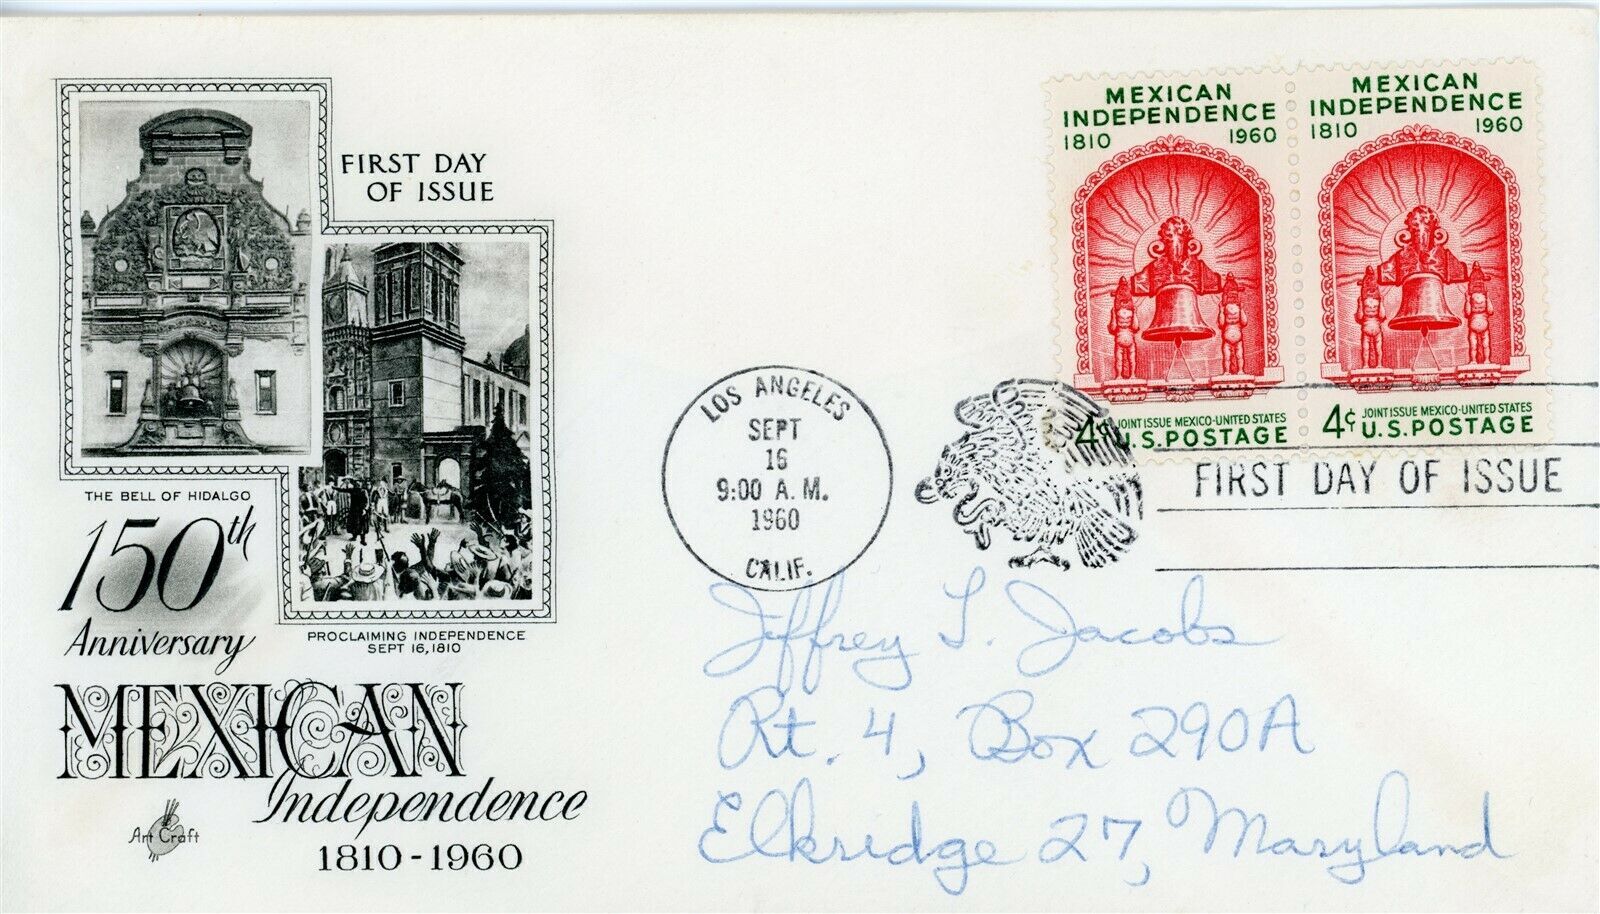 FIRST DAY
OF ISSUE
THE BELL OF HIDALGO
150th
Anniversary
PROCLAIMING INDEPENDENCE
SEPT 16, 1810
MEXICAN
Independence
1810 - 1960
Art Craft
MEXICAN
INDEPENDENCE
1810 1960
JOINT ISSUE MEXICO-UNITED STATES
4¢ U.S. POSTAGE
MEXICAN
INDEPENDENCE
1810 1960
JOINT ISSUE MEXICO-UNITED STATES
4¢ U.S. POSTAGE
LOS ANGELES
SEPT
16
9:00 A. M.
1960
CALIF.
FIRST DAY OF ISSUE
Jeffrey L. Jacobs
Rt. 4, Box 290A
Elkridge 27, Maryland